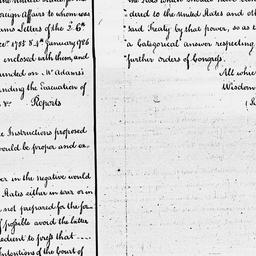 Foreign Affairs to whom was
Adams Letters of the 3.6th
Decr. 1785 & 4th January 1786
enclosed with them, and
founded on Mr. Adams's
demanding the Evacuation of
&c. Reports
the Instructions proposed
would be proper and ex-
in the negative would
States either in war or in
not prepared for the for-
if possible avoid the latter
expedient to press that
Intentions of the Court of
dered to the United States and
said Treaty by that power, so as
a Categorical answer respecting
further orders of Congress.
All which
Wisdom